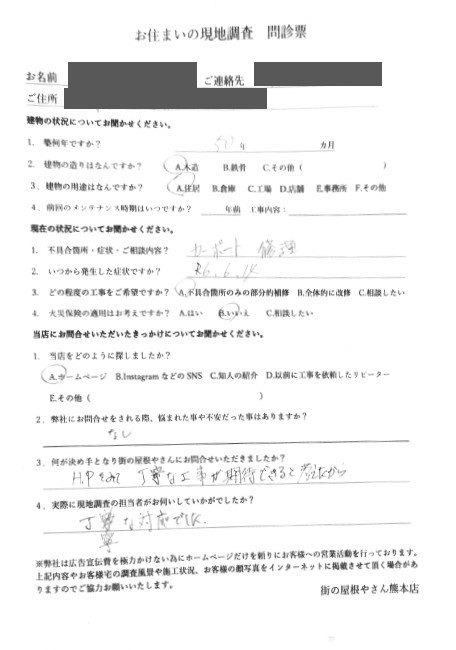 お住まいの現地調査 問診票
お名前 ご連絡先
ご住所
建物の状況についてお聞かせください。
1. 築何年ですか? 50年 カ月
2. 建物の造りはなんですか? A.木造 B.鉄骨 C.その他( )
3. 建物の用途はなんですか? A.住居 B.倉庫 C.工場 D.店舗 E.事務所 F.その他
4. 前回のメンテナンス時期はいつですか? 年前 工事内容:
現在の状況についてお聞かせください。
1. 不具合箇所・症状・ご相談内容? カーポート 修理
2. いつから発生した症状ですか? R6.6.14
3. どの程度の工事をご希望ですか? A.不具合箇所のみの部分的補修 B.全体的に改修 C.相談したい
4. 火災保険の適用はお考えですか? A.はい B.いいえ C.相談したい
当店にお問合せいただいたきっかけについてお聞かせください。
1. 当店をどのように探しましたか?
A.ホームページ B.InstagramなどのSNS C.知人の紹介 D.以前に工事を依頼したリピーター
E.その他( )
2. 弊社にお問合せをされる際、悩まれた事や不安だった事はありますか?
なし
3. 何が決め手となり街の屋根やさんにお問合せいただきましたか?
H.Pをみて 丁寧な工事が期待できると考えたから
4. 実際に現地調査の担当者がお伺いしていかがでしたか?
丁寧な対応でした
寧
※弊社は広告宣伝費を極力かけない為にホームページだけを頼りにお客様への営業活動を行っております。
上記内容やお客様宅の調査風景や施工状況、お客様の顔写真をインターネットに掲載させて頂く場合があ
りますのでご協力お願いいたします。
街の屋根やさん熊本店